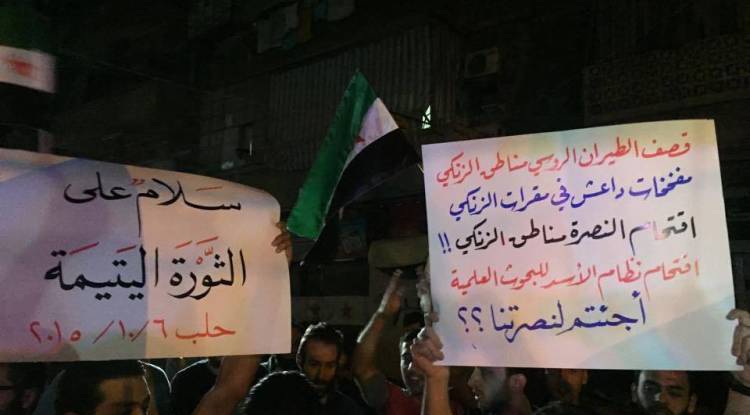 سلام على
الثَّوْرَة اليَتيمَة
حلب ٢٠١٥/١٠/٦
قصف الطيران الروسي مناطق الزنكي
مفخخات داعش في مقرات الزنكي
اقتحام النصرة مناطق الزنكي !!
اقتحام نظام الأسد للبحوث العلمية
أجئتم لنصرتنا ؟؟